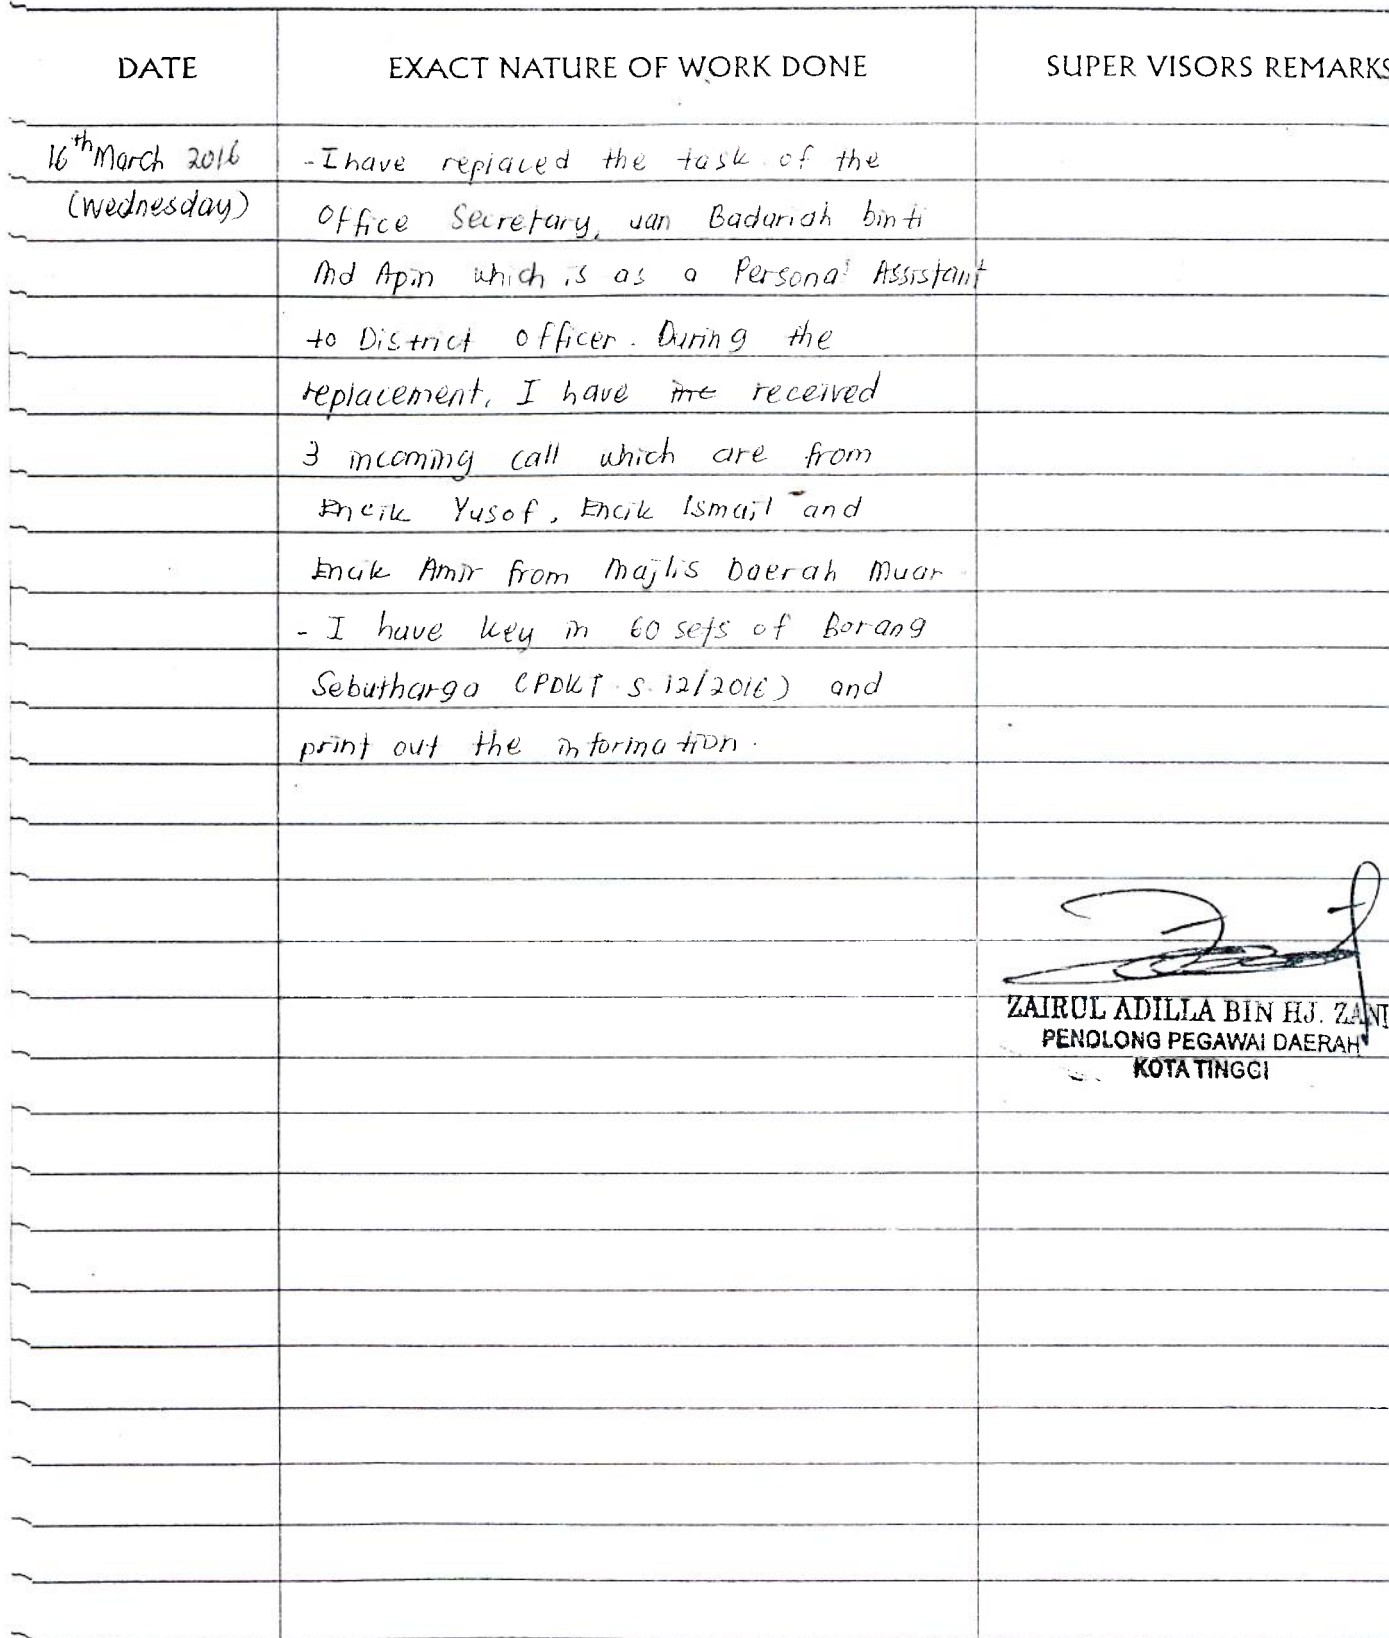 DATE EXACT NATURE OF WORK DONE SUPER VISORS REMARKS
16th March 2016 - I have replaced the task of the
(Wednesday) Office Secretary, Badariah binti
Md Apin which is as a Personal Assistant
to District officer. During the
replacement, I have received
3 incoming call which are from
Encik Yusof, Encik Ismail and
Encik Amir from Majlis Daerah Muar
- I have key in 60 sets of Borang
Sebutharga (PDKT. S. 12/2016) and
print out the information.
ZAIRUL ADILLA BIN HJ. ZANI
PENOLONG PEGAWAI DAERAH
KOTA TINGGI